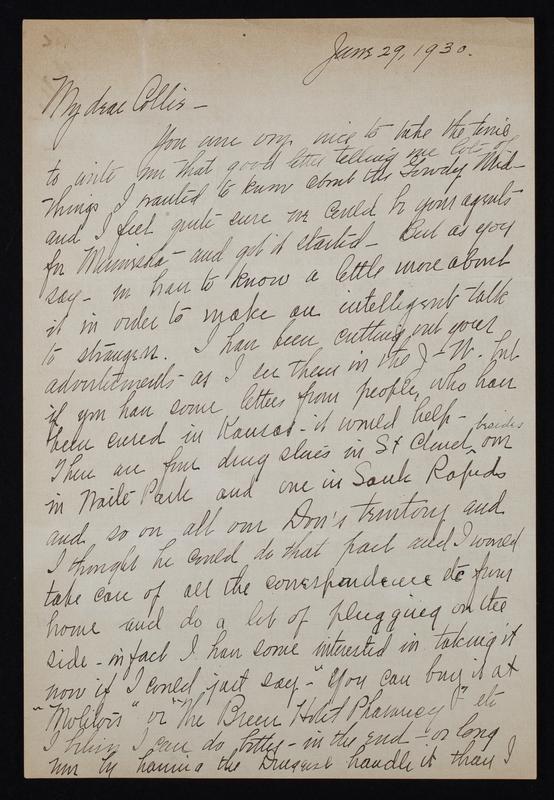 June 29, 1930.
My dear Collis -
You are very nice to take the time
to write me that good letter telling me lots of
things I wanted to know about the Med-
and I feel quite sure we could be your agents
for Minnesota - and get it started - But as you
say - we have to know a little more about
it in order to make an intelligent talk
to strangers. I have been cutting out your
advertisements - as I see them in the J-W. but
if you have some letters from people, who have
been cured in Kansas - it would help -
There are four drug stores in St Cloud, besides one
in Waite Park and one in Sauk Rapids
and so on all over Don's territory and
I thought he could do that part and I would
take care of all the correspondence etc from
home and do a lot of plugging on the
side - in fact I have some interested in taking it
now if I could just say - "You can buy it at
"Molitor's" or "The Breen Hotel Pharmacy" etc
I believe I can do better - in the end - or long
run by having the Druggist handle it than I